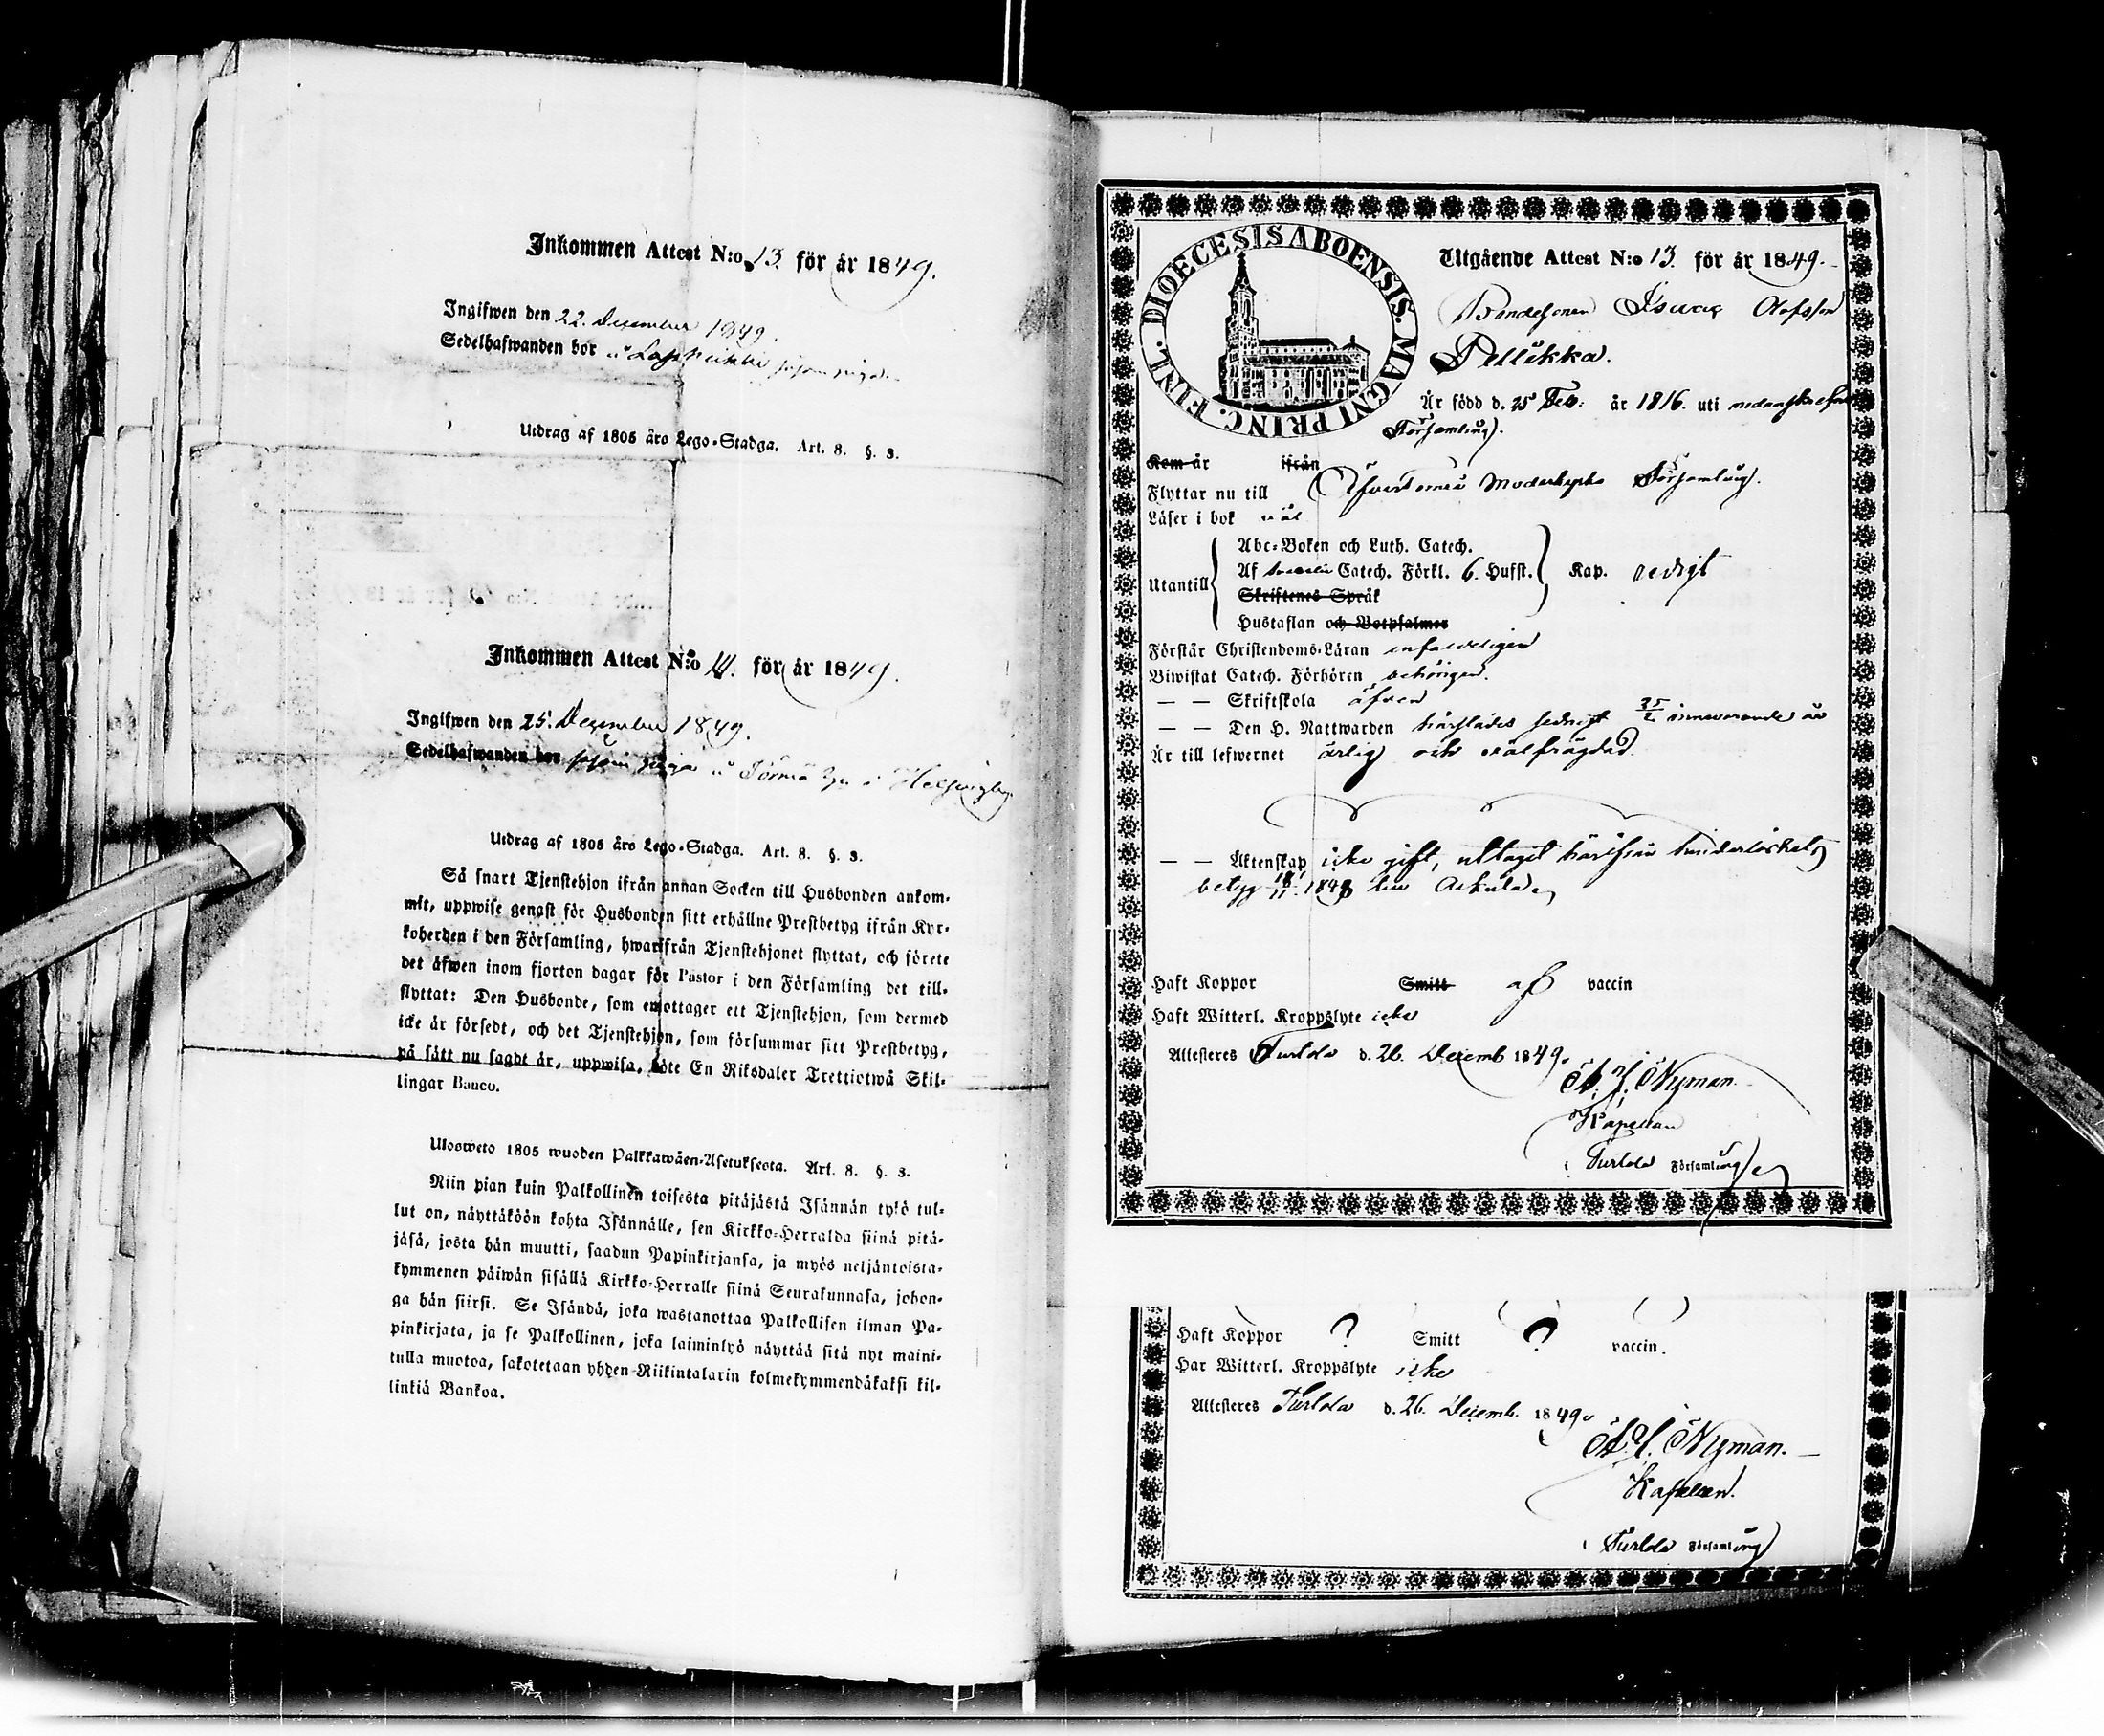 Inkommen Attest N:o 13. för år 1849.
Ingifwen den 22. December 1849.
Sedelhafwanden bor
Utdrag af 1805 års Lego-Stadga. Art. 8. §. 3.
Inkommen Attest N:o 14. för år 1849.
Ingifwen den 25. December 1849.
Sedelhafwanden bor såsom piga
Utdrag af 1805 års Lego-Stadga. Art. 8. §. 3.
Så snart Tjenstehjon ifrån annan Socken till Husbonden ankom-
mit, uppwise genast för Husbonden sitt erhållne Prestbetyg ifrån Kyr-
koherden i den Församling, hwarifrån Tjenstehjonet flyttat, och förete
det äfwen inom fjorton dagar för Pastor i den Församling det till-
flyttat: Den Husbonde, som emottager ett Tjenstehjon, som dermed
icke är försedt, och det Tjenstehjon, som försummar sitt Prestbetyg,
på sätt nu sagdt är, uppwisa, böte En Riksdaler Trettiotwå Skil-
lingar Banco.
Ulosweto 1805 wuoden Palkkawäen-Asetuksesta. Art. 8. §. 3.
Niin pian kuin Palkollinen toisesta pitäjästä Isännän tykö tul-
lut on, näyttäköön kohta Isännälle, sen Kirkko-Herralda siinä pitä-
jäsä, josta hän muutti, saadun Papinkirjansa, ja myös neljäntoista-
kymmenen päiwän sisällä Kirkko-Herralle siinä Seurakunnasa, johon-
ga hän siirsi. Se Isändä, joka wastanottaa Palkollisen ilman Pa-
pinkirjata, ja se Palkollinen, joka laiminlyö näyttää sitä nyt maini-
tulla muotoa, sakotetaan yhden Riikintalarin kolmekymmendäkaksi kil-
linkiä Bankoa.
DIOECESIS ABOENSIS. MAGNI PRINC. FINL.
Utgående Attest N:o 13. för år 1849.
Bondesonen Isaac Olofsson
Pellikka.
Är född d. 25 Feb: år 1816. uti
Församling.
Kom år ifrån
Flyttar nu till Öfvertorneå Moderkyrko Församling.
Läser i bok väl
Utantill
Abc-Boken och Luth. Catech.
Af Catech. Förkl. 6. Hufst. Kap. redigt
Skriftenes Språk
Hustaflan och Botpsalmer
Förstår Christendoms-Läran enfaldeligen
Biwistat Catech. Förhören behörigen.
— — Skriftskola äfven
— — Den H. Nattwarden härstädes sednast innevarande år
Är till lefwernet ärlig och välfrägdad.
— — Äktenskap icke gift, uttaget härifrån hinderlöshets
betyg 1848 till
Haft Koppor Smitt af vaccin
Haft Witterl. Kroppslyte icke
Attesteres Turtola d. 26. Decemb 1849.
A. J. Nyman.
Kapellan
i Turtola Församling
Haft Koppor ? Smitt ? vaccin.
Har Witterl. Kroppslyte icke
Attesteres Turtola d. 26. Decemb. 1849.
A. J. Nyman.
Kapellan.
i Turtola Församling